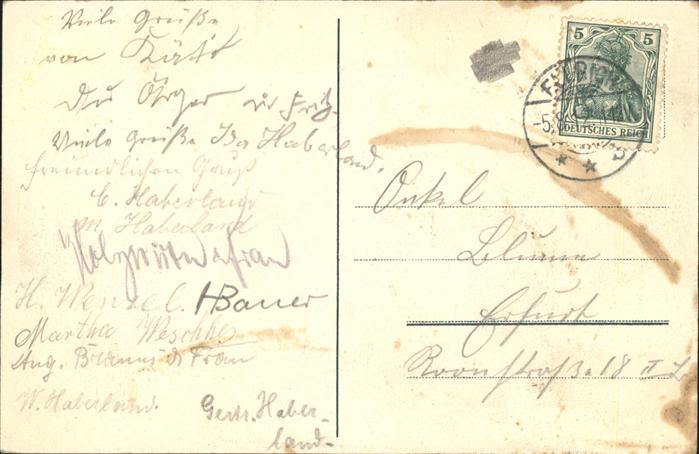 Viele Grüße
von Käte
Viele Grüße Ida Haberland.
freundlichen Gruß
C. Haberland
M. Haberland
H. Wenzel. HBauer
Martha Weschke
Aug. Brauns & Frau
W. Haberland.
Gertr. Haber-
land.
5 5
DEUTSCHES REICH
Onkel
Blume
Erfurt
Roonstraße 18 II